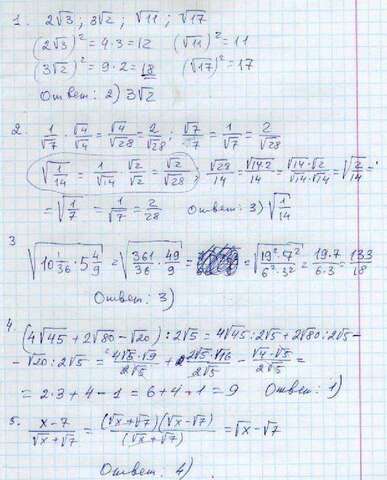 1. 2√3 ; 3√2 ; √11 ; √17
(2√3)² = 4·3 = 12 (√11)² = 11
(3√2)² = 9·2 = 18 (√17)² = 17
Ответ: 2) 3√2
2. 1/√7 · √4/√4 = √4/√28 = 2/√28 ; √7/7 = 1/√7 = 2/√28
√(1/14) = 1/√14 · √2/√2 = √2/√28 , √28/14 = √(14·2)/14 = (√14·√2)/(√14·√14) = √(2/14) =
= √(1/7) = 1/√7 = 2/√28 Ответ: 3) √(1/14)
3 √(10 1/36 · 5 4/9) = √(361/36 · 49/9) = = √((19²·7²)/(6²·3²)) = (19·7)/(6·3) = 133/18
Ответ: 3)
4. (4√45 + 2√80 − √20) : 2√5 = 4√45 : 2√5 + 2√80 : 2√5 −
− √20 : 2√5 = (4√5·√9)/(2√5) + (2√5·√16)/(2√5) − (√4·√5)/(2√5) =
= 2·3 + 4 − 1 = 6 + 4 − 1 = 9 Ответ: 1)
5. (x−7)/(√x+√7) = ((√x+√7)(√x−√7))/(√x+√7) = √x − √7
Ответ: 4)